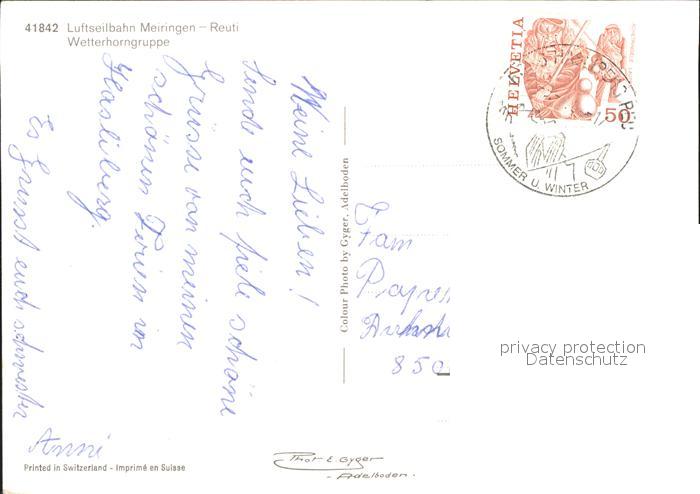 41842 Luftseilbahn Meiringen – Reuti
Wetterhorngruppe
Meine Lieben!
Sende euch fiele schöne
Grüsse von meinen
schönen Ferien im
Hasliberg.
Es Grüsst euch schwester
Anni
Printed in Switzerland - Imprimé en Suisse
Colour Photo by Gyger, Adelboden
Phot E. Gyger
- Adelboden.
HELVETIA
50
SOMMER U. WINTER
Fam
850
privacy protection
Datenschutz